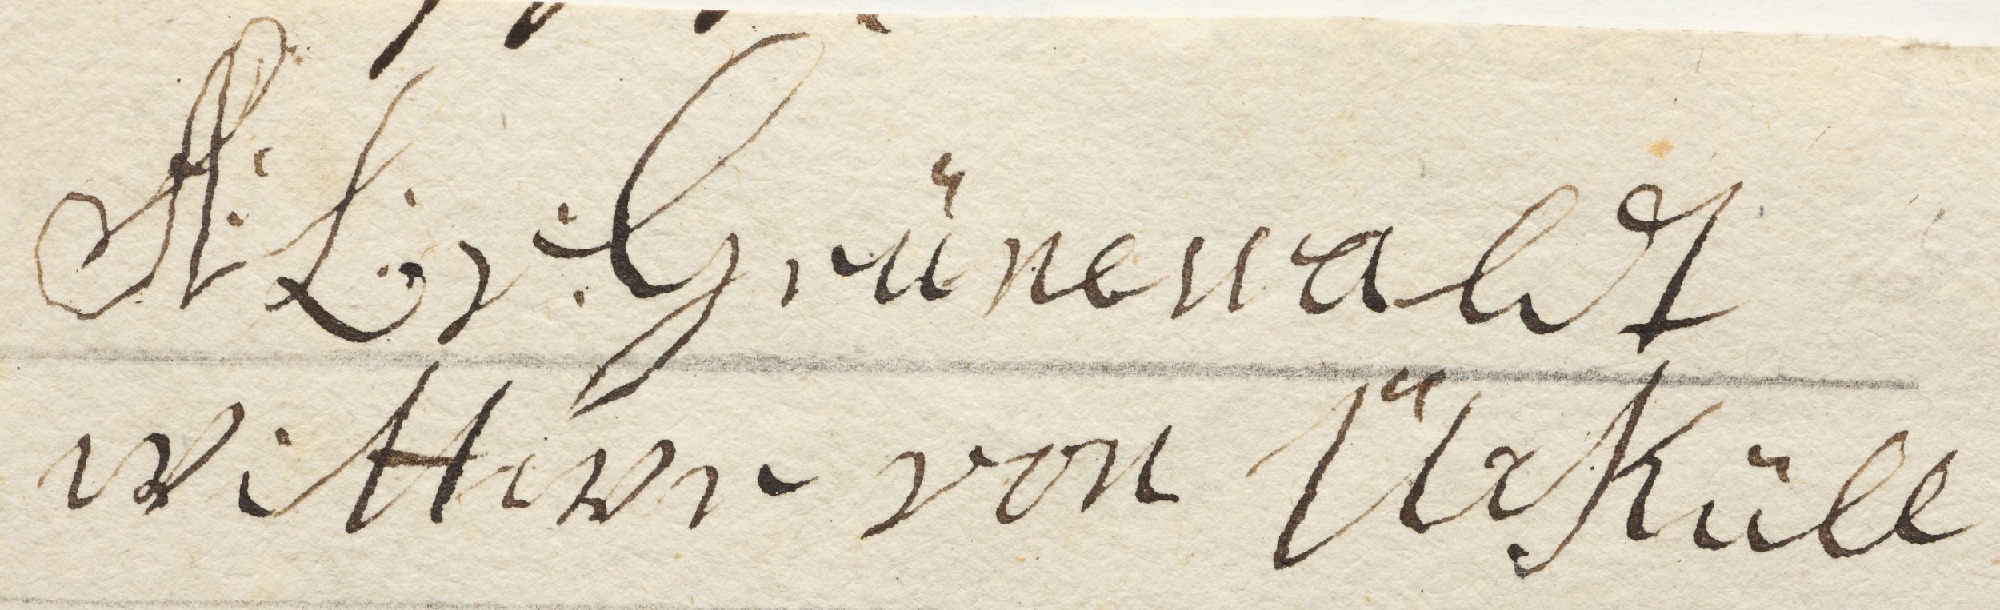 A: L: v: Grünewaldt
wittwe von Üxküll